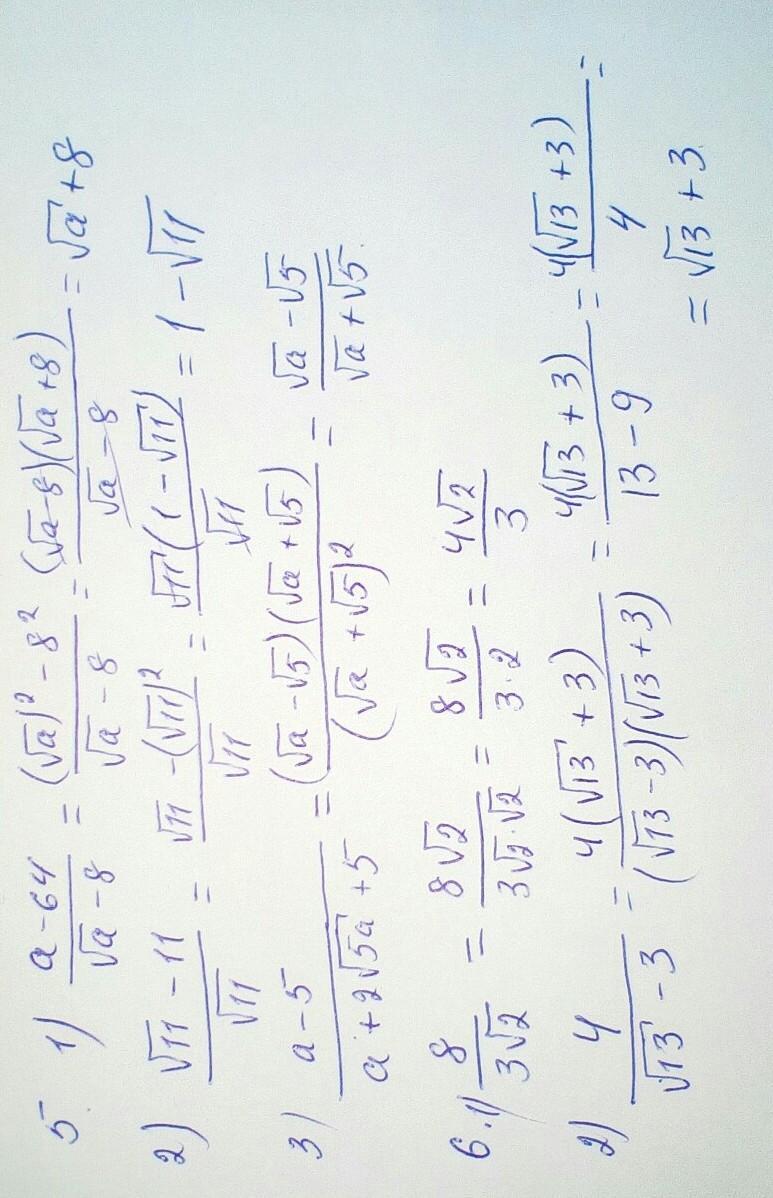 5. 1) (a-64)/(√a-8) = ((√a)²-8²)/(√a-8) = ((√a-8)(√a+8))/(√a-8) = √a+8
2) (√11-11)/√11 = (√11-(√11)²)/√11 = (√11(1-√11))/√11 = 1-√11
3) (a-5)/(a+2√5a+5) = ((√a-√5)(√a+√5))/(√a+√5)² = (√a-√5)/(√a+√5).
6. 1) 8/(3√2) = (8√2)/(3√2·√2) = (8√2)/(3·2) = (4√2)/3
2) 4/(√13-3) = (4(√13+3))/((√13-3)(√13+3)) = (4(√13+3))/(13-9) = (4(√13+3))/4 =
= √13+3